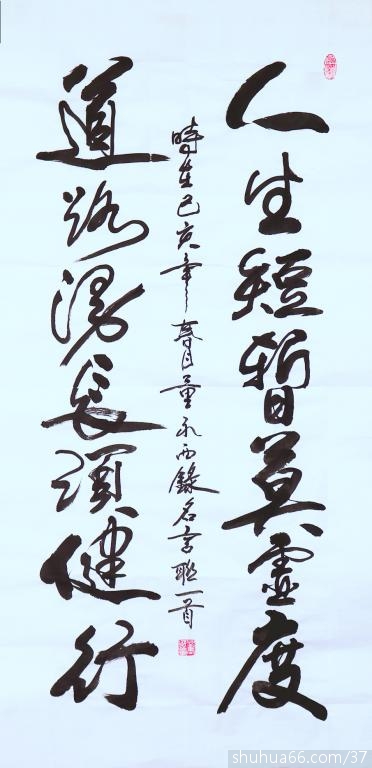 人生短暫莫虛度
時在己亥年春月永西錄名言聯一首
道路漫長須健行
shuhua66.com/37